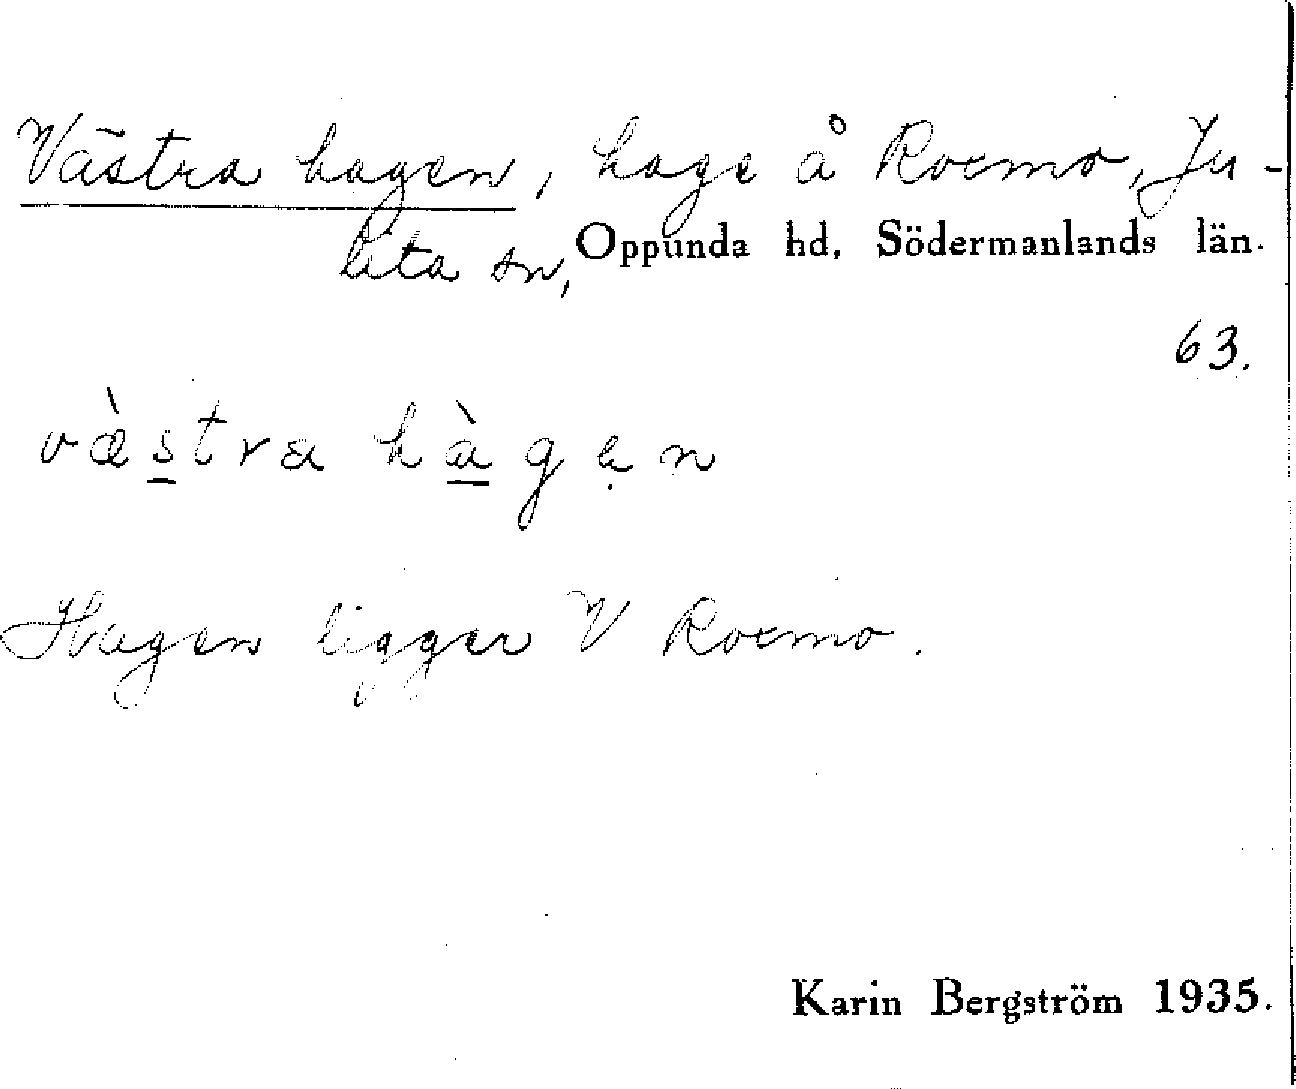 Västra hagen, hage å Roxmo, Ju-
lita sn, Oppunda hd, Södermanlands län.
63.
væ̀s̲tra hà̲gẹn
Hagen ligger V Roxmo.
Karin Bergström 1935.